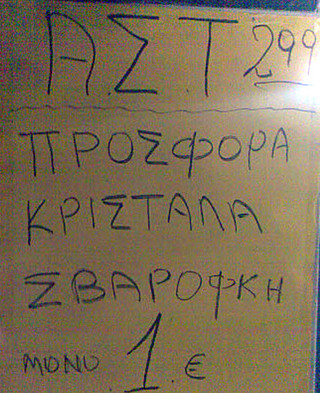 Α.Σ.Τ 299
ΠΡΟΣΦΟΡΑ
ΚΡΙΣΤΑΛΑ
ΣΒΑΡΟΦΚΗ
ΜΟΝΟ 1 €